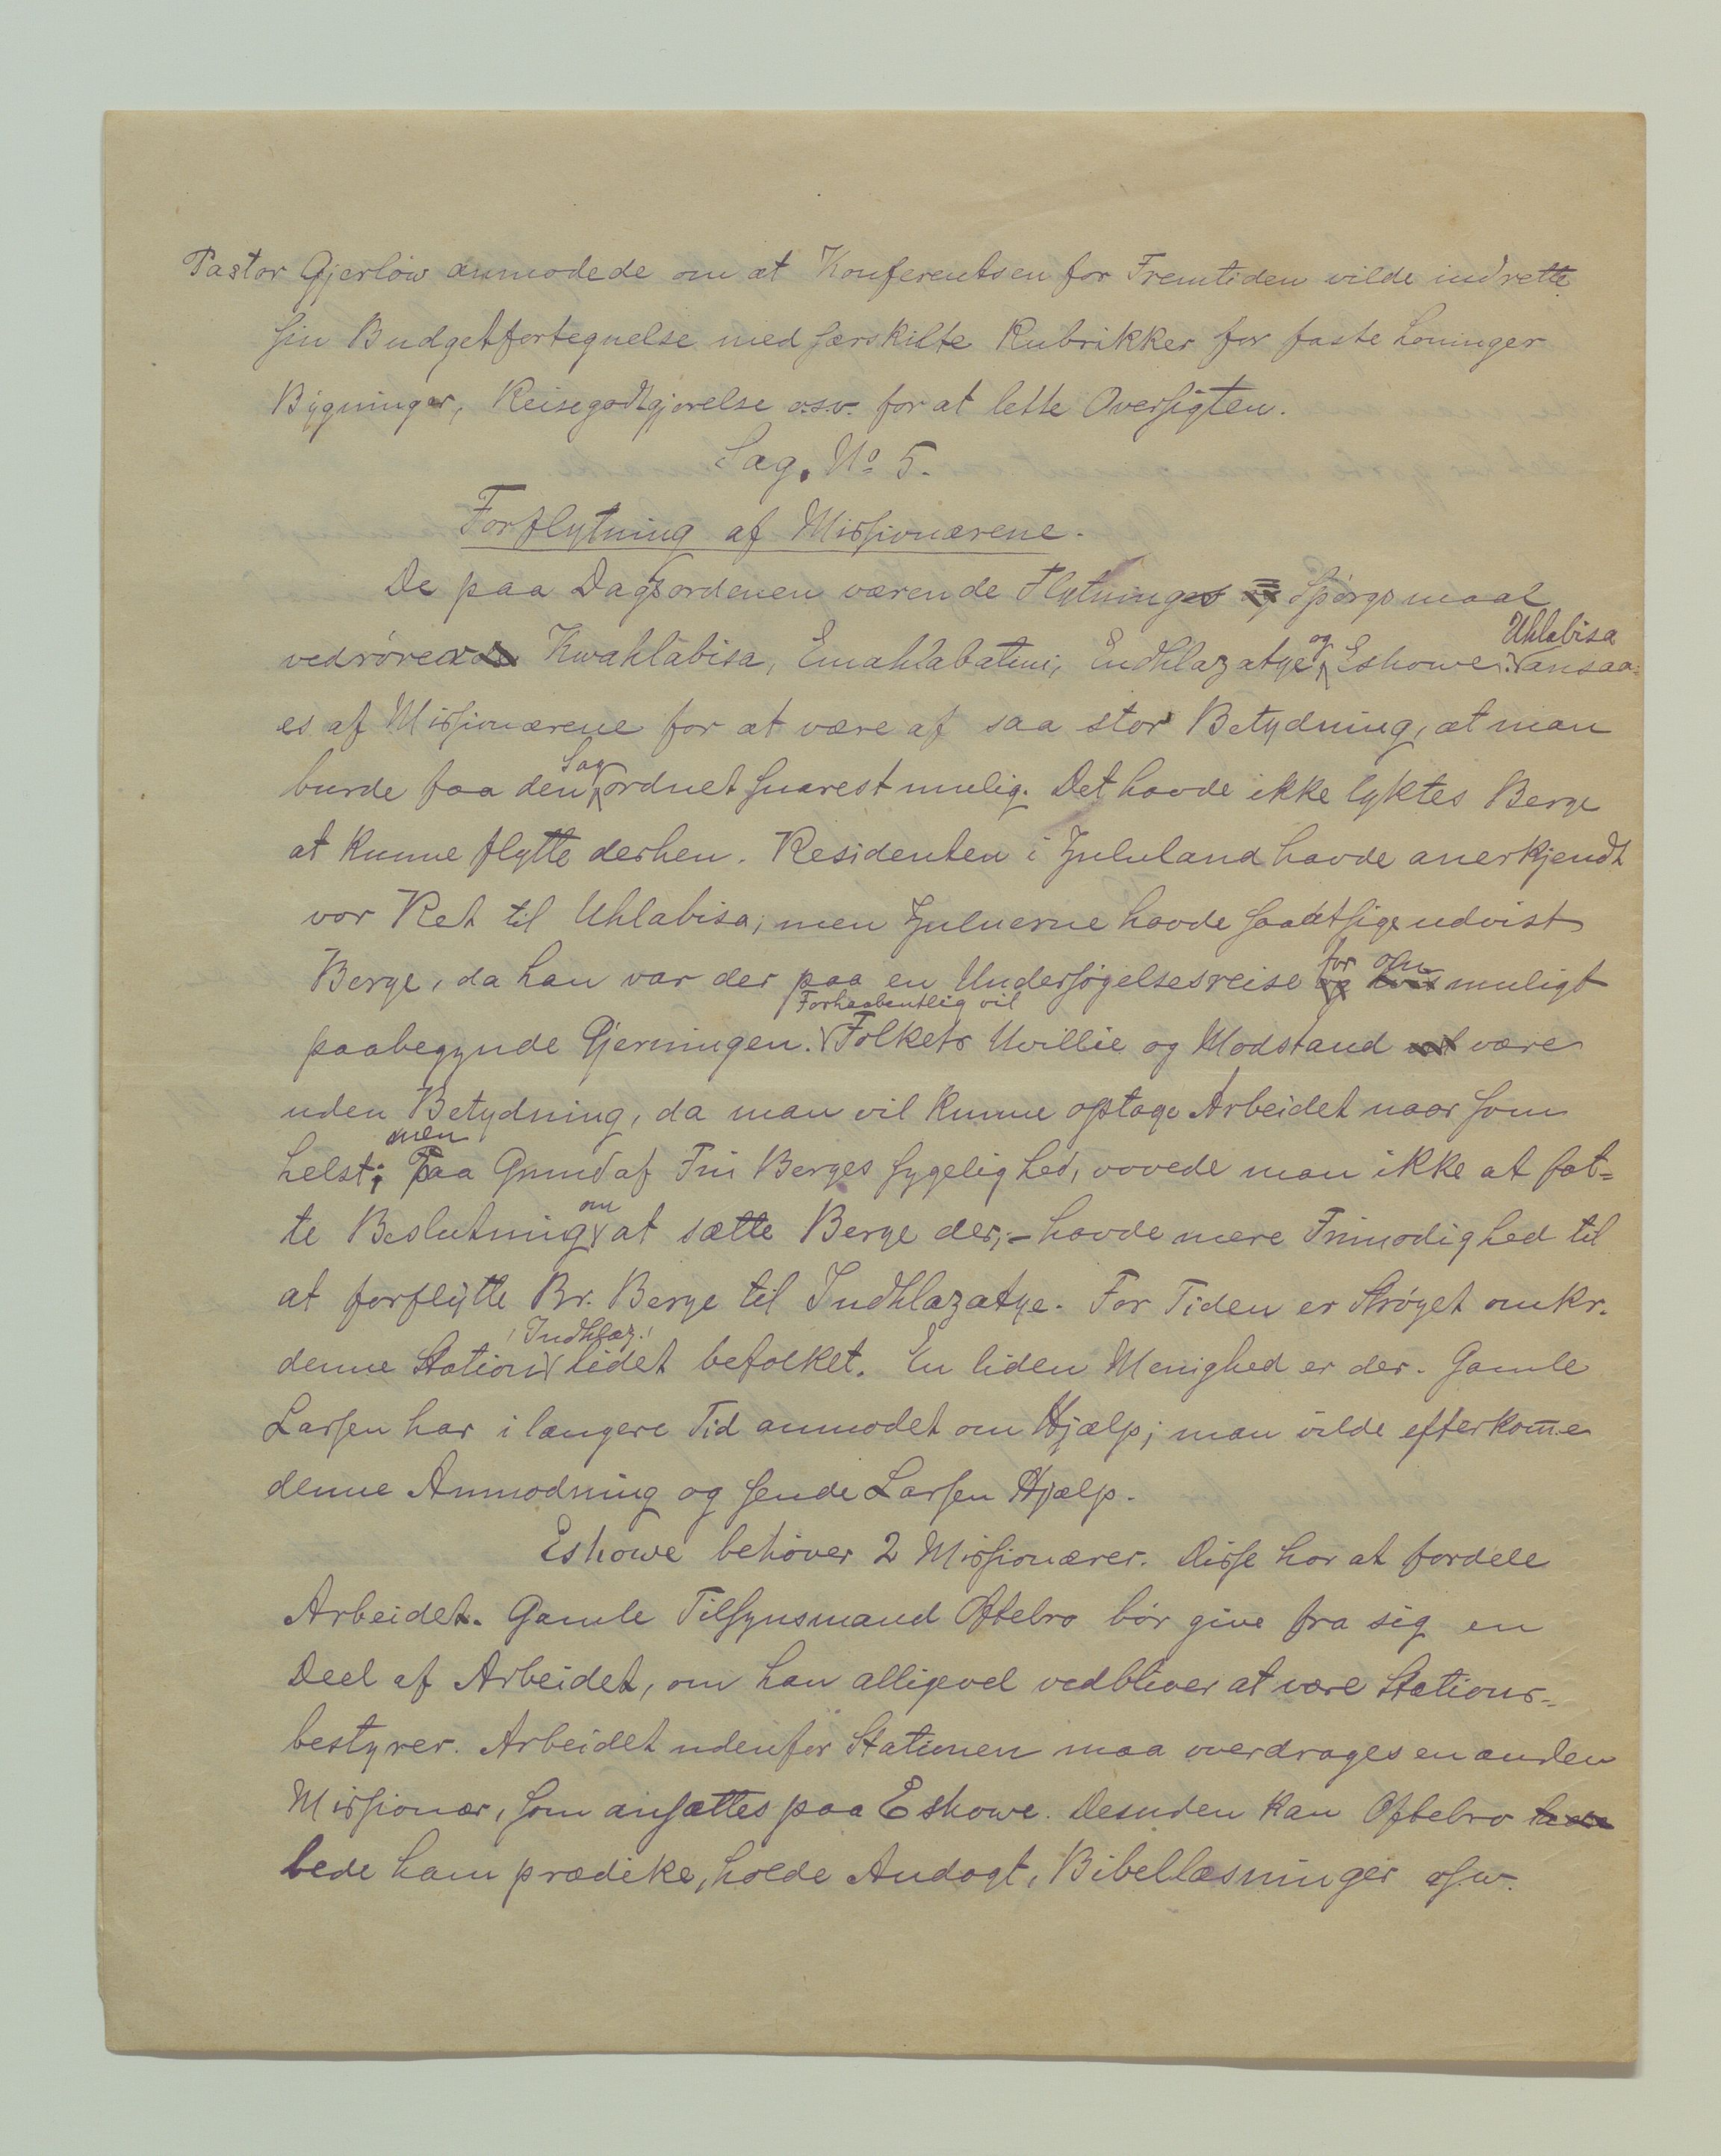 Pastor Gjerløw anmodede om at Konferentsen for Fremtiden vilde indrette
sin Budgetfortegnelse med særskilte Rubrikker for faste Lønninger
Bygninger, Reisegodtgjørelse o.s.v. for at lette Oversigten.
Sag. No 5.
Forflytning af Missionærene.
De paa Dagsordenen værende Flytnings = Spørgsmaal
vedrører Kwahlabisa, Emahlabatini, Endhlazatye og Eshowe. Uhlabisa ansaa-
es af Missionærene for at være af saa stor Betydning, at man
burde faa den Sag ordnet snarest mulig. Det havde ikke lyktes Berge
at kunne flytte derhen. Residenten i Zululand havde anerkjendt
vor Ret til Uhlabisa, men Zuluerne havde saaatsige udvist
Berge, da han var der paa en Undersøgelsesreise for om muligt
paabegynde Gjerningen. Forhaabentlig vil Folkets Uvillie og Modstand være
uden Betydning, da man vil kunne optage Arbeidet naar som
helst; men paa Grund af Fru Berges Sygelighed, vovede man ikke at fat-
te Beslutning om at sætte Berge der; - havde mere Frimodighed til
at forflytte Br. Berge til Indhlazatye. For Tiden er Strøget omkr.
denne Station (Indhlaz.) lidet befolket. En liden Menighed er der. Gamle
Larsen har i længere Tid anmodet om Hjælp; man vilde efterkomme
denne Anmodning og sende Larsen Hjælp.
Eshowe behøver 2 Missionærer. Disse har at fordele
Arbeidet. Gamle Tilsynsmand Oftebro bør give fra sig en
Deel af Arbeidet, om han alligevel vedbliver at være Stations-
bestyrer. Arbeidet udenfor Stationen maa overdrages en anden
Missionær, som ansættes paa Eshowe. Desuden kan Oftebro
bede ham prædike, holde Andagt, Bibellæsninger osv.